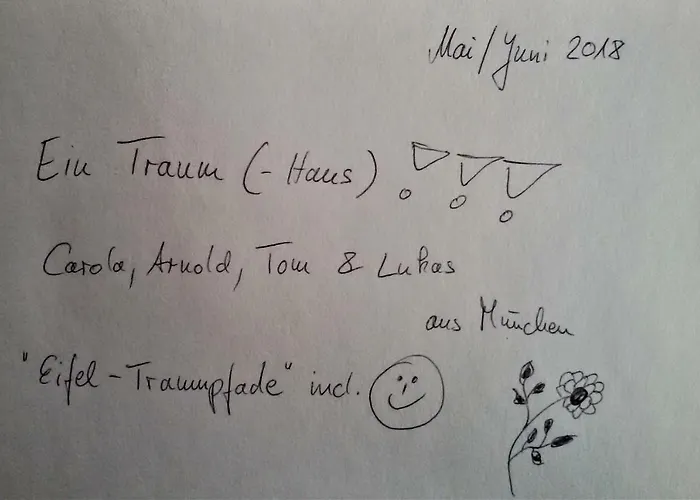 Mai/Juni 2018
Ein Traum (-Haus) !!!
Carola, Arnold, Tom & Lukas
aus München
"Eifel-Traumpfade" incl.